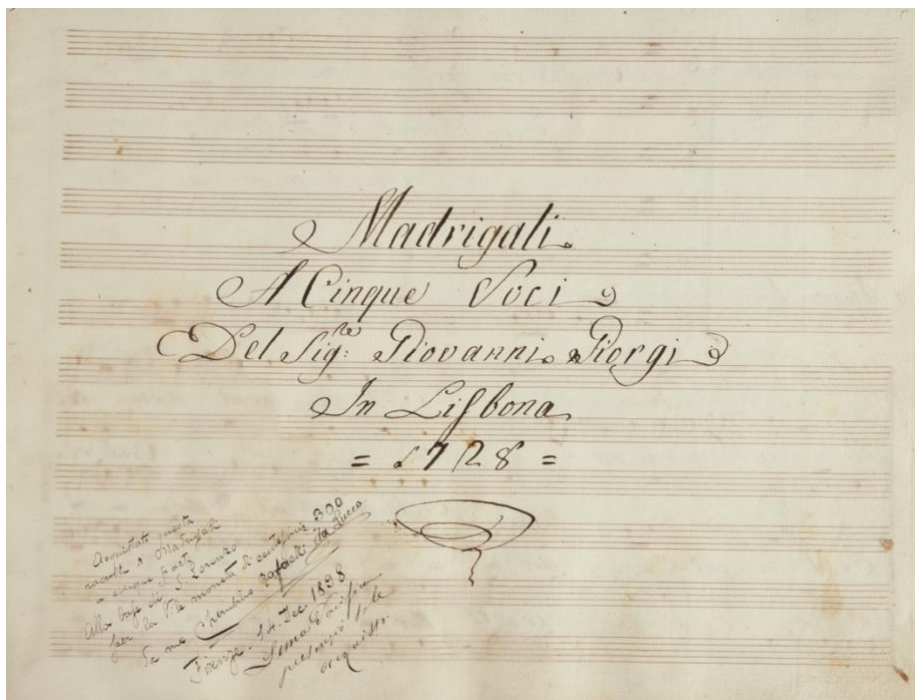 Madrigali
A Cinque Voci
Del Sig.re Giovanni Giorgi
In Lisbona
= 1728 =
Acquistati questa
raccolta di Madrigali
a cinque parti
Alla base di S. Lorenzo
per la vile moneta di centesimi 300
Da me Cherubino Raffaelli da Lucca
Firenze. 14. Dec. 1898
presenziò tale
acquisto